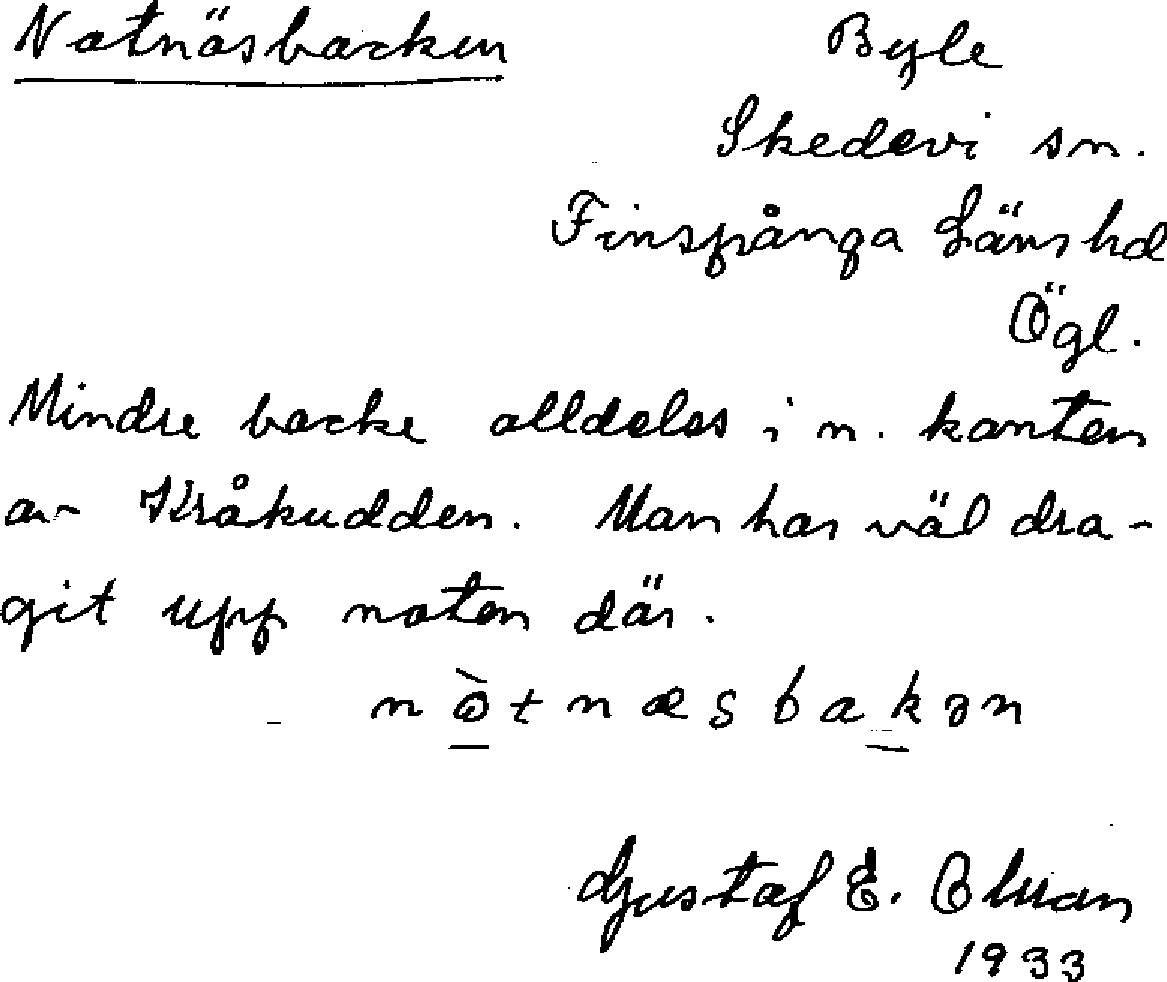 Notnäsbacken
Byle
Skedevi sn.
Finspånga Länshd
Ögl.
Mindre backe alldeles i n. kanten
av Kråkudden. Man har väl dra-
git upp noten där.
nὼtnæsbakən
Gustaf E.
1933